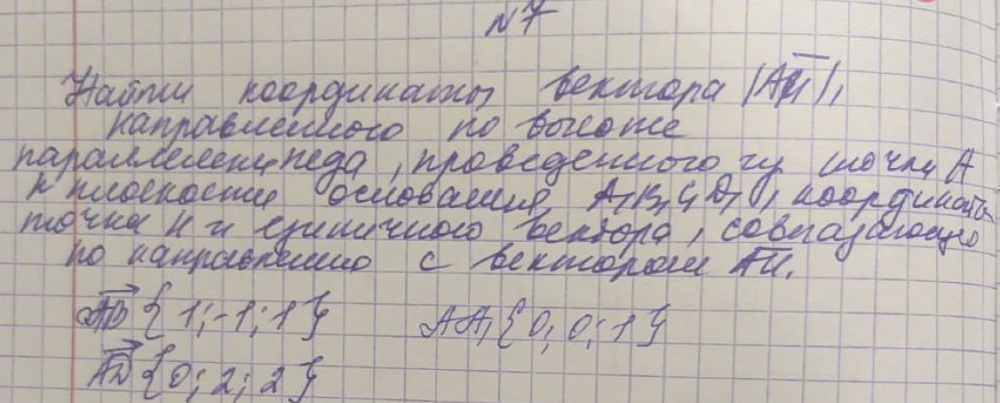 N7
Найти координаты вектора |АН|,
направленного по высоте
параллелепипеда, проведенного из точки А
к плоскости основания A₁B₁C₁D₁, координаты
точки Н и единичного вектора, совпадающего
по направлению с вектором АН.
AB {1;-1;1} AA₁{0;0;1}
AD {0;2;2}